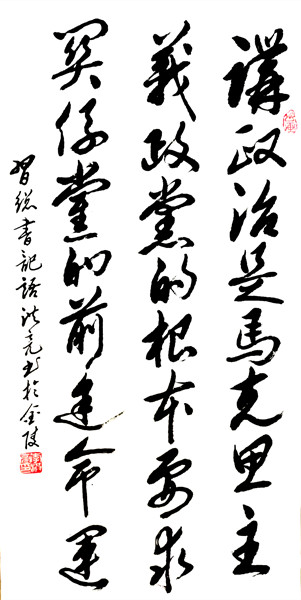 講政治是馬克思主
義政党的根本要求
関係党的前途命運
習総書記語洪亮书於金陵